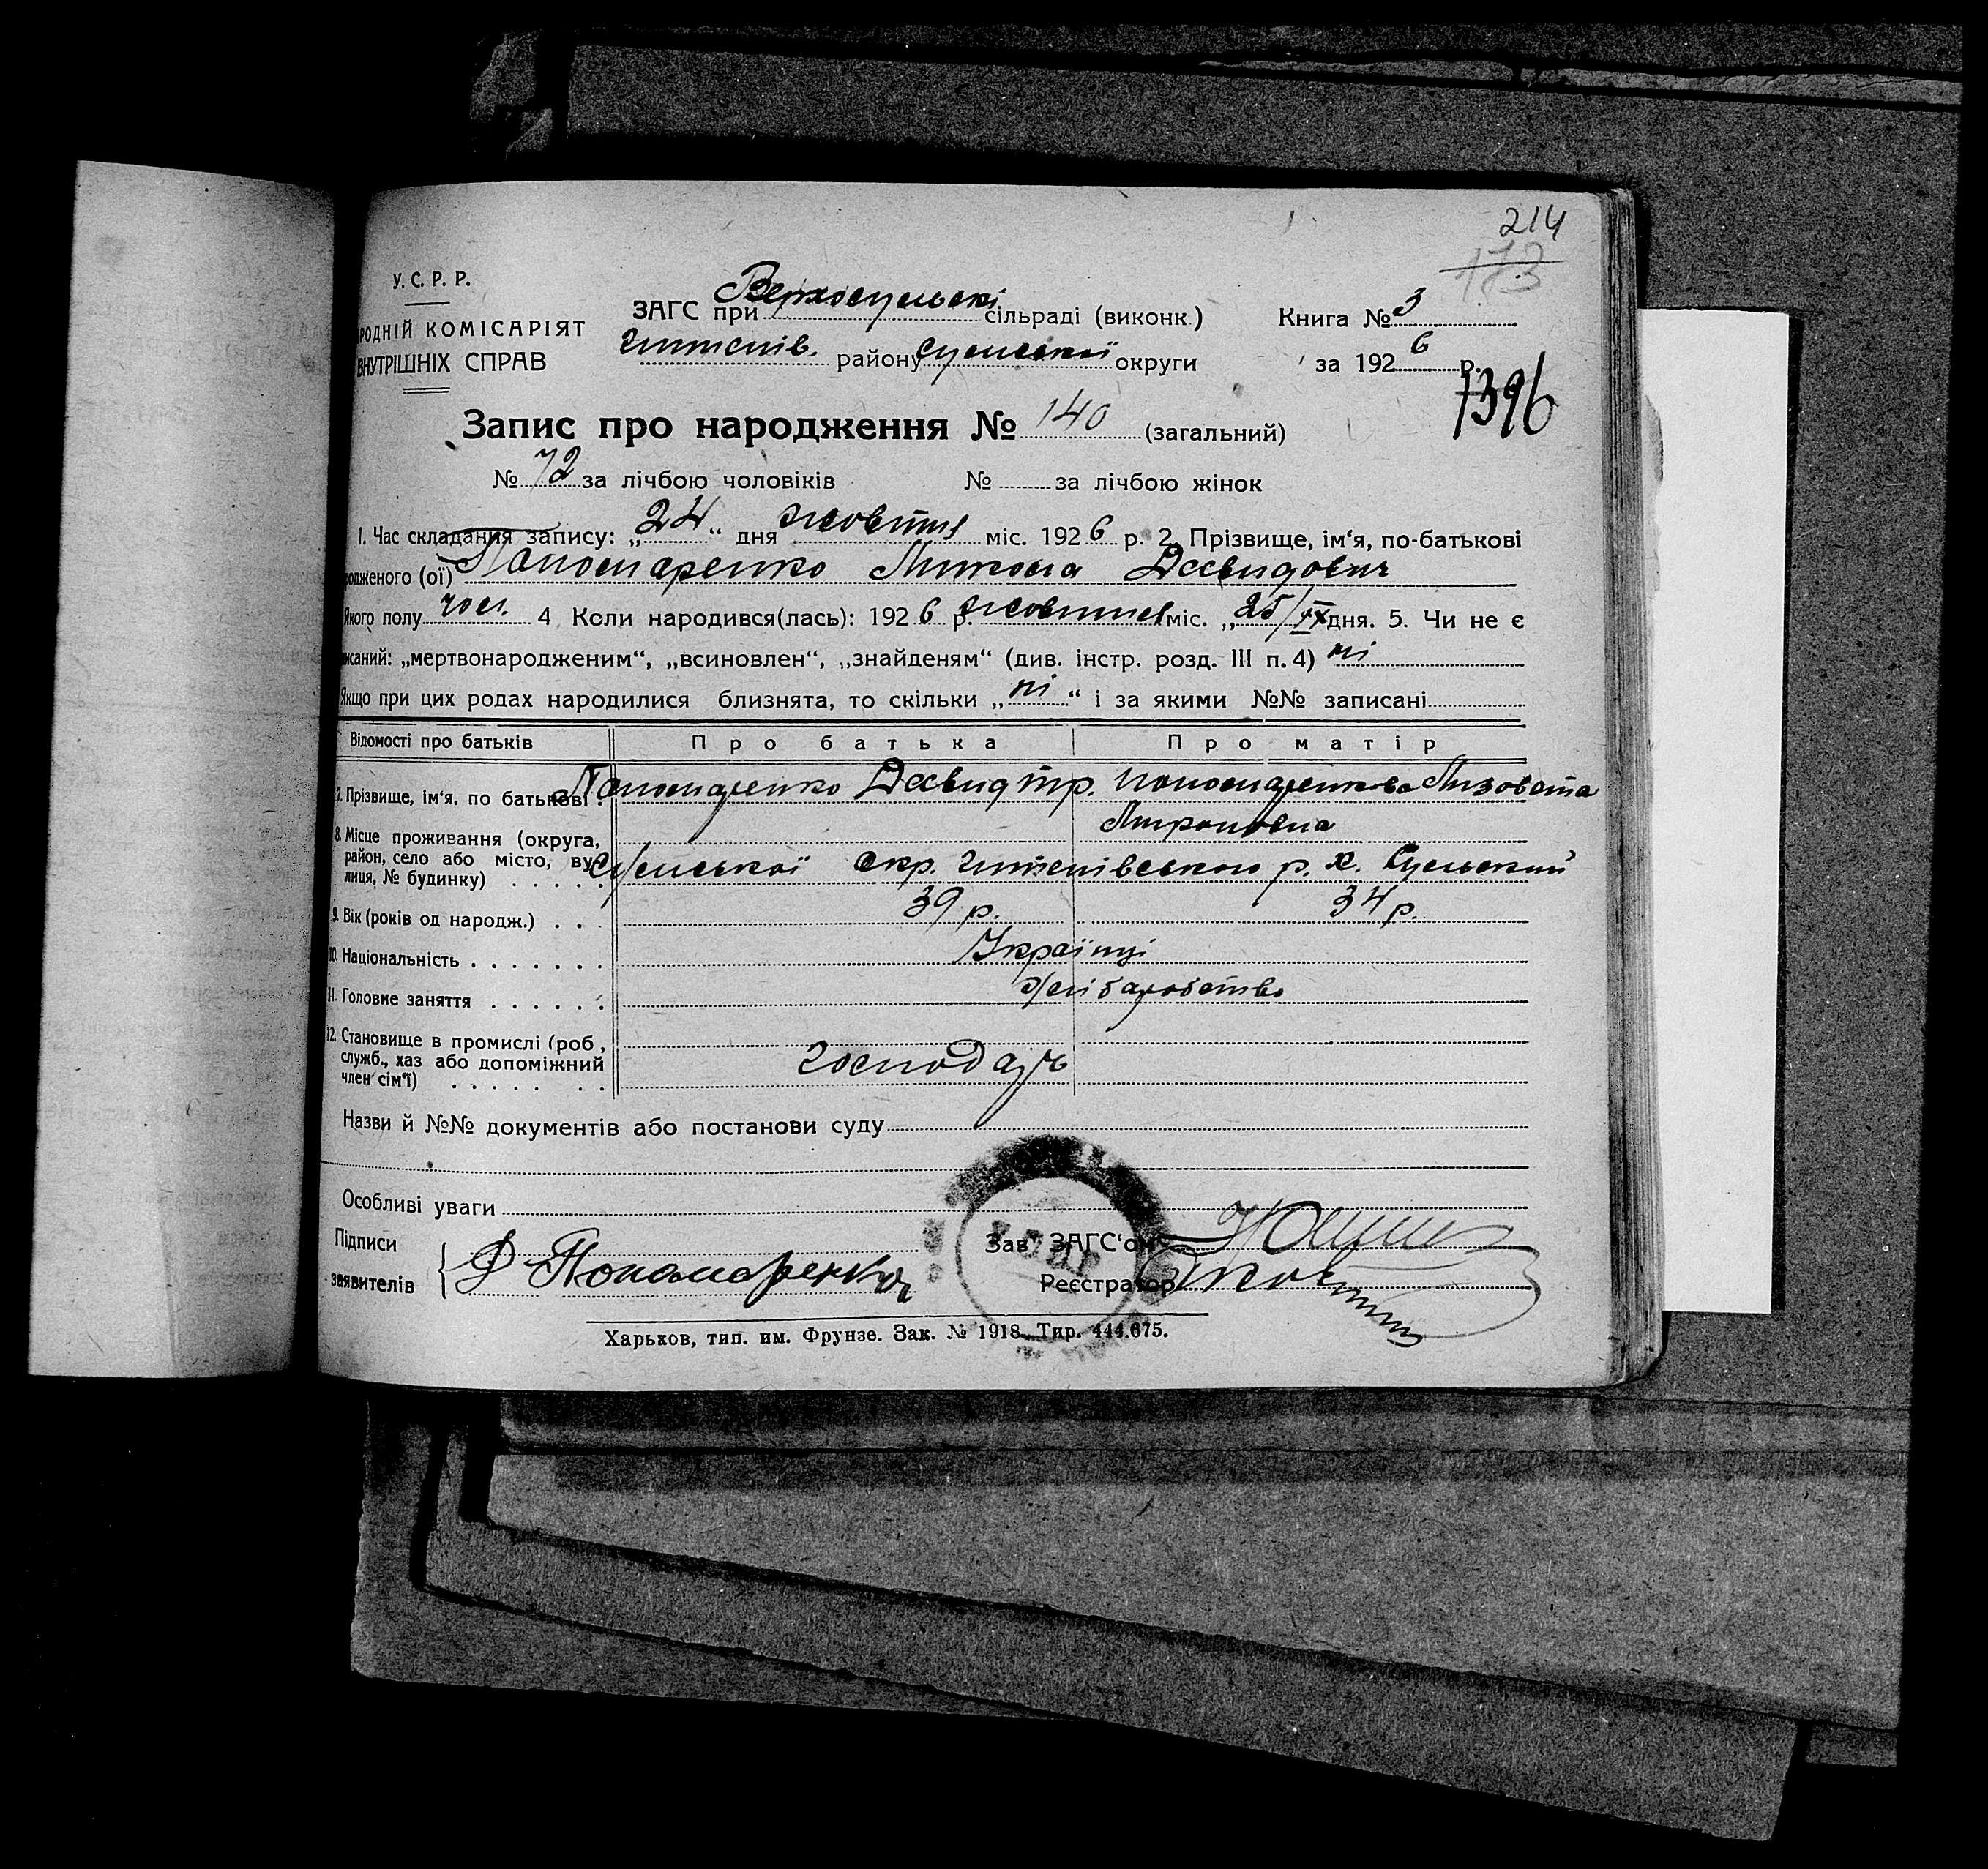 214
173
У. С. Р. Р.
РОДНІЙ КОМІСАРІЯТ
ВНУТРІШНІХ СПРАВ
ЗАГС при Верхосульскі сільраді (виконк.)
Книга № 3
Штепів. району Сумської округи
за 1926 р.
1396
Запис про народження № 140 (загальний)
№ 72 за лічбою чоловіків № за лічбою жінок
1. Час складання запису: „24“ дня жовтня міс. 1926 р. 2. Прізвище, ім‘я, по-батькові
родженого (ої) Пономаренко Микола Давидович
Якого полу чол. 4 Коли народився(лась): 1926 р. жовтня міс. „25/IX дня. 5. Чи не є
писаний: „мертвонародженим“, „всиновлен“, „знайденям“ (див. інстр. розд. III п. 4) ні
Якщо при цих родах народилися близнята, то скільки „ні“ і за якими №№ записані
Відомості про батьків Про батька Про матір
7. Прізвище, ім‘я, по батькові . Пономаренко Давид тр. Пономаренкова Лизовета
Мироновна
8. Місце проживання (округа, район, село або місто, вулиця, № будинку) Сумської окр. Штепівського р. х. Сульский
9. Вік (років од народж.) . . . 39 р. 34 р.
10. Національність . . . . . . . Українці
11. Головне заняття . . . . . . Хліборобство
12. Становище в промислі (роб., служб., хаз або допоміжний член сім‘ї) господарь
Назви й №№ документів або постанови суду
Особливі уваги
Підписи
заявителів Д Пономаренко
Зав ЗАГС‘ом
Реєстратор
Харьков, тип. им. Фрунзе. Зак. № 1918. Тир. 444.675.